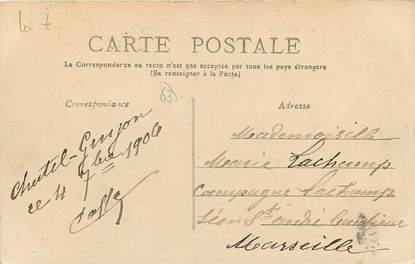 CARTE POSTALE
La Correspondance au recto n'est pas acceptée par tous les pays étrangers
(Se renseigner à la Poste)
Correspondance
63
Adresse
Chatel-Guyon
ce 4 7bre 1906
Mademoiselle
Marie Lachamp
Campagne Lachamp
St André
Marseille